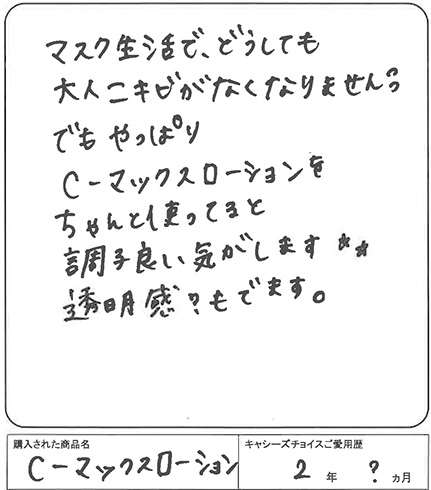 マスク生活で、どうしても
大人ニキビがなくなりません。
でもやっぱり
C-マックスローションを
ちゃんと使ってると
調子良い気がします**
透明感?もでます。
購入された商品名
C-マックスローション
キャシーズチョイスご愛用歴
2年 ?ヵ月